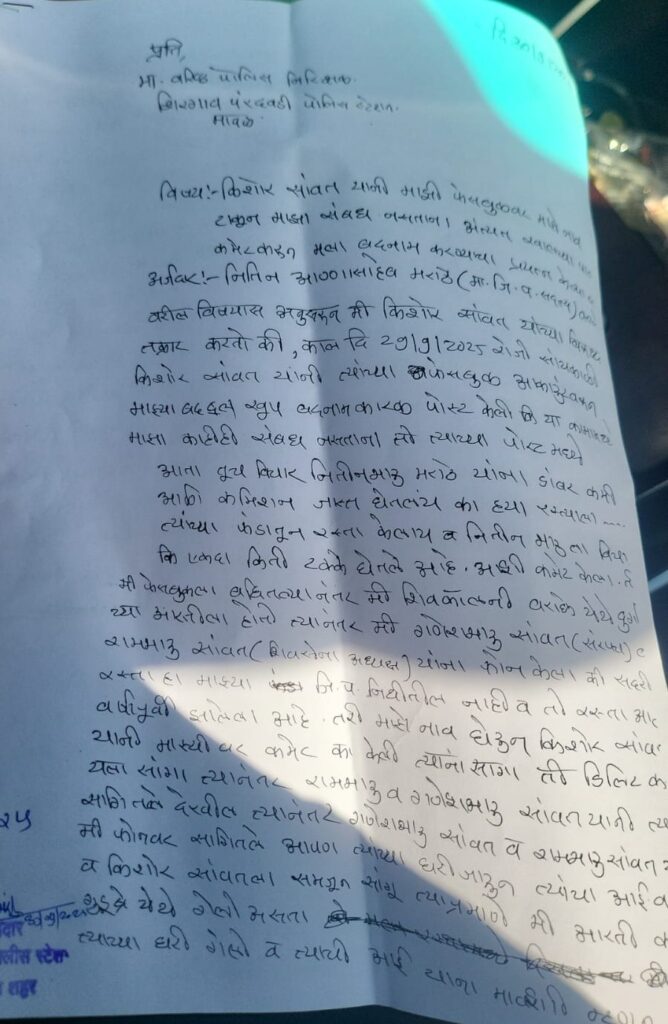 प्रति,
मा. वरिष्ठ पोलिस निरिक्षक
शिरगाव परंदवडी पोलिस स्टेशन
मावळ
विषय:- किशोर सांवत यांनी माझी फेसबुकवर माझे नाव
टाकून माझा संबध नसताना अत्यंत
कमेंट करुन मला बदनाम करण्याचा प्रयत्न केला
अर्जदार:- नितिन आण्णासाहेब मराठे (मा. जि. प. सदस्य)
वरील विषयास अनुसरून मी किशोर सांवत यांच्या विरुध्द
तक्रार करतो की, काल दि 29/9/2025 रोजी सांयकाळी
किशोर सांवत यांनी त्यांच्या फेसबुक अकाऊंटवरून
माझ्या बद्दल खुप बदनामकारक पोस्ट केली कि या कामाचे
माझा काहीही संबध नसताना तो त्याच्या पोस्ट मध्ये
आता तुच विचार नितीनभाऊ मराठे यांना डांबर कमी
आणि कमिशन जास्त घेतलंय का हया रस्त्याला ....
त्यांच्या फंडातून रस्ता केलाय व नितीन भाऊला विचा
कि एकदा किती टक्के घेतले आहे. अशी कमेंट केला. ते
मी फेसबुकला बघितल्या नंतर मी शिवकॉलनी वराळे येथे दुर्गा
च्या आरतीला होतो त्यानंतर मी गणेशभाऊ सांवत (सरपंच) व
रामभाऊ सांवत (शिवसेना अध्यक्ष) यांना फोन केला की सदरी
रस्ता हा माझ्या जि. प. निधीतील नाही व तो रस्ता आठ
वर्षापूर्वी झालेला आहे. तरी माझे नाव घेऊन किशोर सांवत
यांनी माझ्यी वर कमेंट का केली त्यांना सांगा ती डिलिट क
यला सांगा त्यानंतर रामभाऊ व गणेशभाऊ सांवत यांनी त्या
सांगितले देखील त्यानंतर गणेशभाऊ सांवत व रामभाऊ सांवत
मी फोनवर सांगितले आपण त्यांच्या घरी जाऊन त्यांचा आई व
व किशोर सांवतला समजून सांगू त्याप्रमाणे मी आरती क
येथे गेलो असता
त्यांच्या घरी गेलो व त्याची आई यांना मावशी
२५
दार
लीस स्टेश
शहर